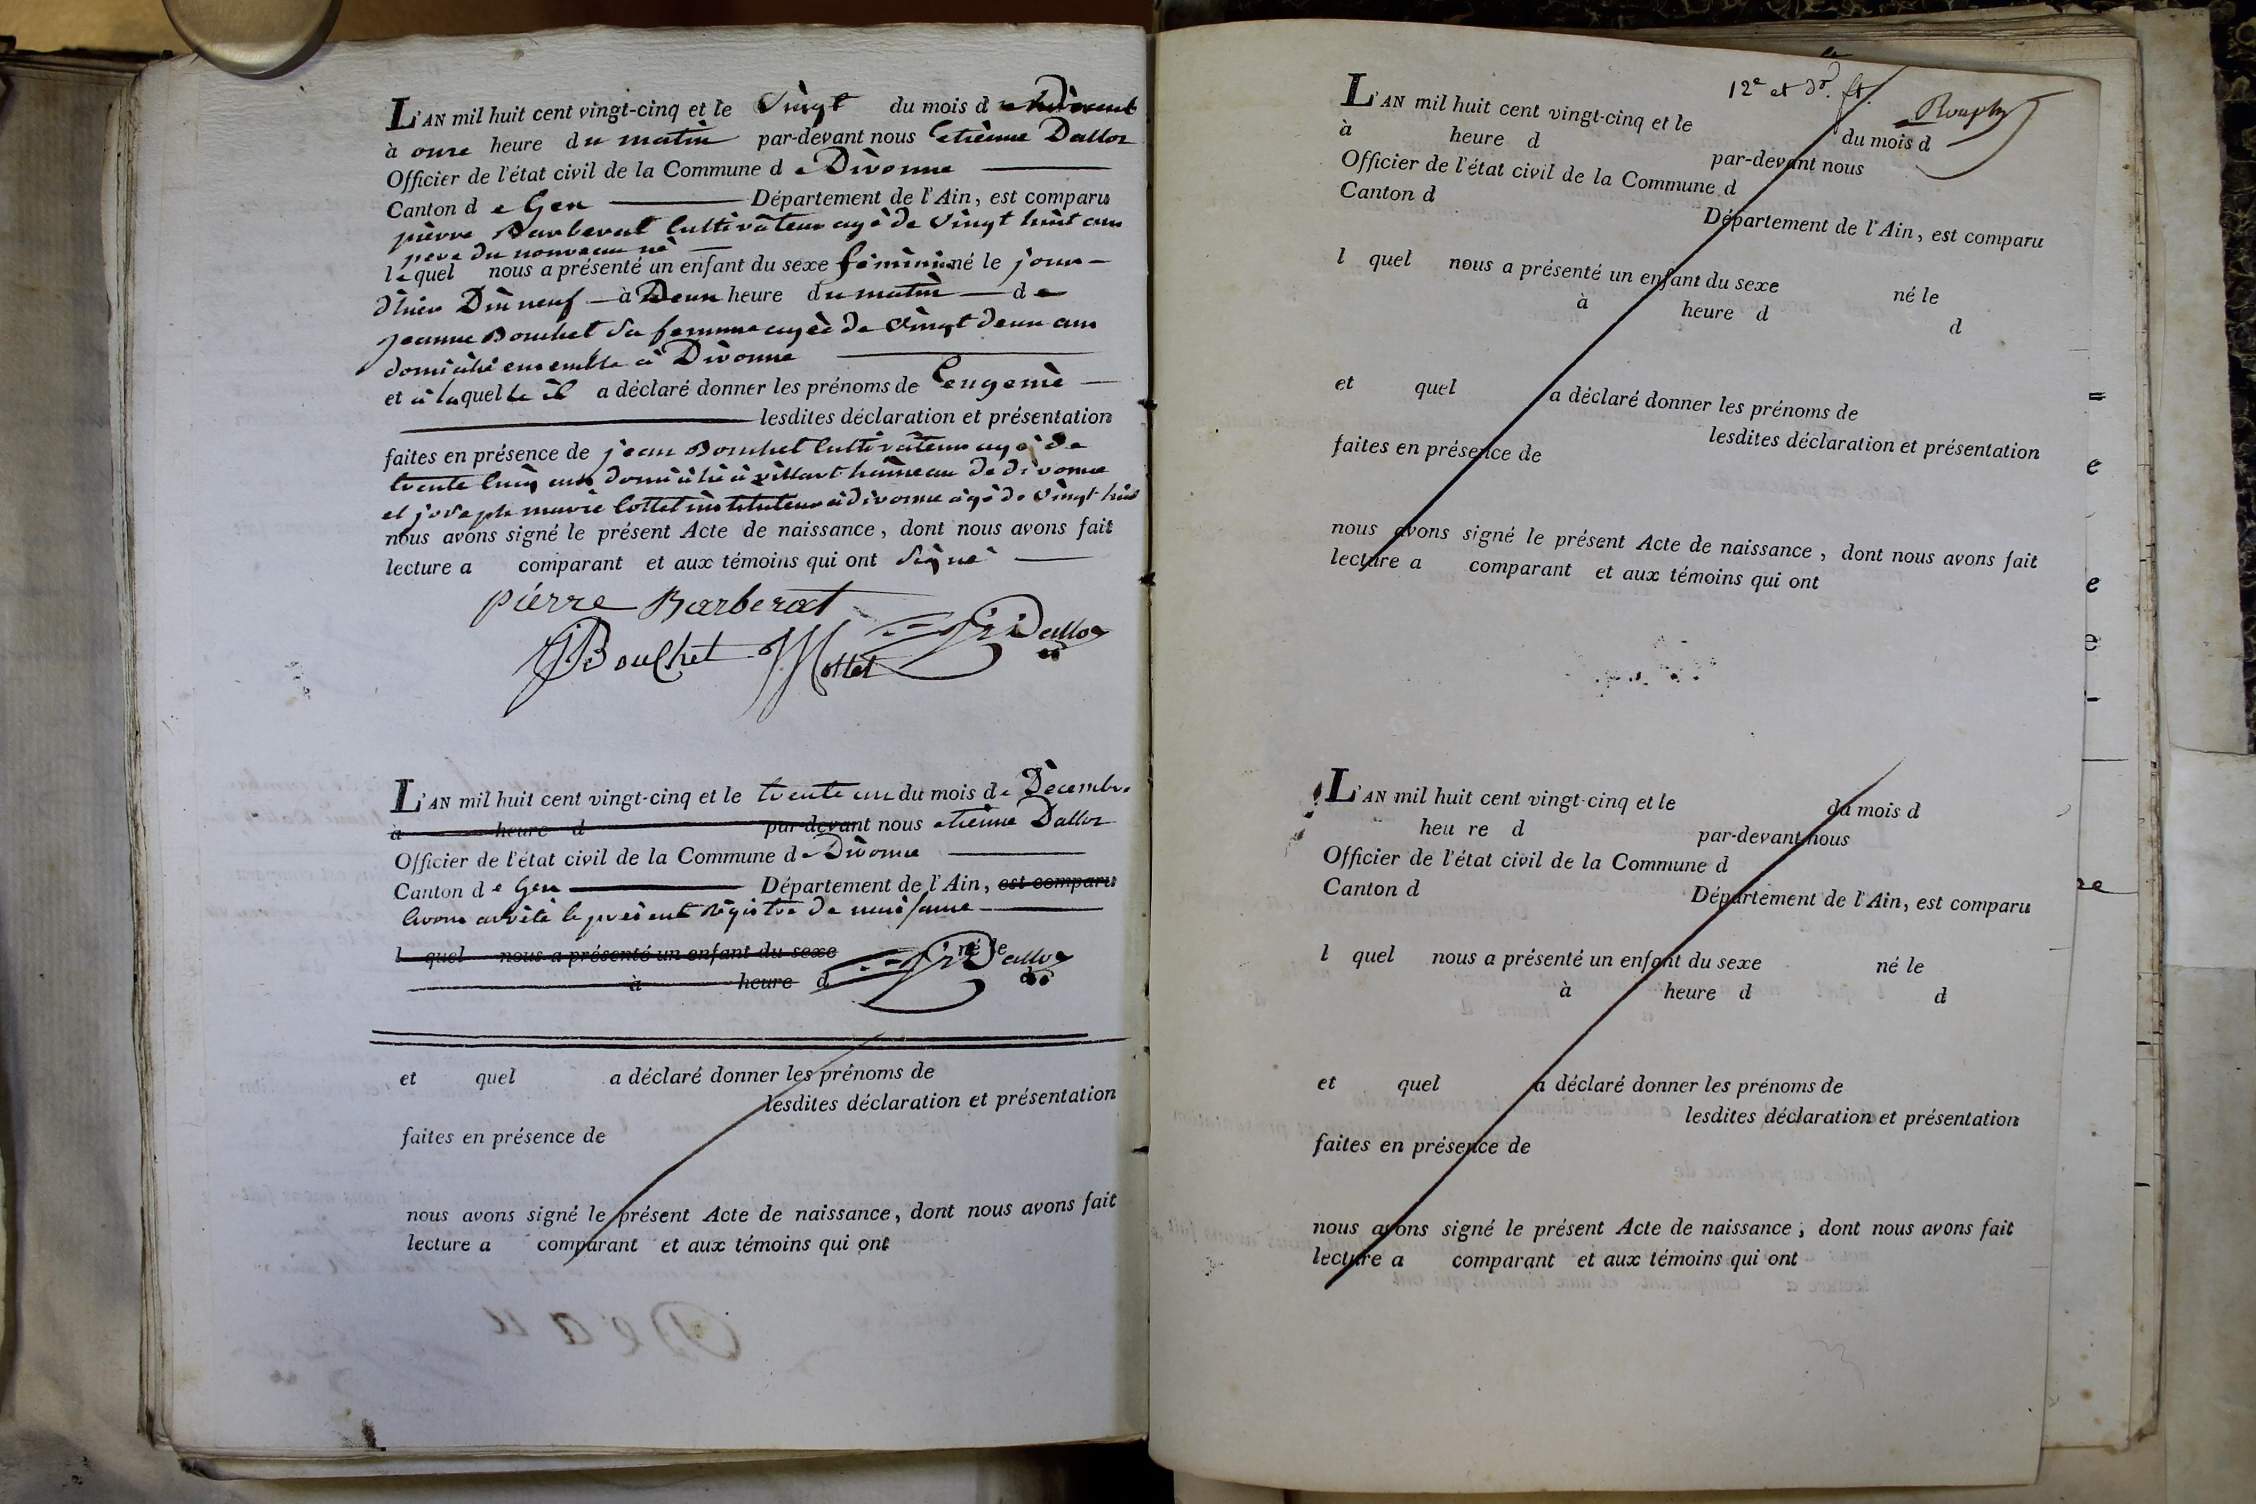 L'AN mil huit cent vingt-cinq et le Vingt du mois de
à onze heure du matin par-devant nous Etiènne Dalloz
Officier de l'état civil de la Commune de Divonne
Canton de Gex Département de l'Ain, est comparu
pièrre Barberat Cultivâteur agé de Vingt huit ans
pere du nouveau né
lequel nous a présenté un enfant du sexe féminin né le jour
d'hier Dix neuf à Deux heure du matin de
jeanne Bouchet sa femme agée de Vingt deux ans
domicilié ensemble à Divonne
et à laquelle il a déclaré donner les prénoms de Eugenie
lesdites déclaration et présentation
faites en présence de jean Bouchet Cultivâteur agé de
trente Cinq ans domicilié à villart hâmeau de divonne
et joseph marie Cottet instituteur à divonne agé de Vingt huit
nous avons signé le présent Acte de naissance, dont nous avons fait
lecture a comparant et aux témoins qui ont Signé
pièrre Barberat
Bouchet Cottet Dalloz
L'AN mil huit cent vingt-cinq et le trente un du mois de Dècembre
à heure d par-devant nous etienne Dalloz
Officier de l'état civil de la Commune de Divonne
Canton de Gex Département de l'Ain, est comparu
Avons arrêté le présent régistre de naissance
l quel nous a présenté un enfant du sexe né le
à heure d d
Dalloz
et quel a déclaré donner les prénoms de
lesdites déclaration et présentation
faites en présence de
nous avons signé le présent Acte de naissance, dont nous avons fait
lecture a comparant et aux témoins qui ont
12e et
L'AN mil huit cent vingt-cinq et le du mois d
à heure d par-devant nous
Officier de l'état civil de la Commune d
Canton d Département de l'Ain, est comparu
l quel nous a présenté un enfant du sexe né le
à heure d d
et quel a déclaré donner les prénoms de
lesdites déclaration et présentation
faites en présence de
nous avons signé le présent Acte de naissance, dont nous avons fait
lecture a comparant et aux témoins qui ont
L'AN mil huit cent vingt-cinq et le du mois d
heu re d par-devant nous
Officier de l'état civil de la Commune d
Canton d Département de l'Ain, est comparu
l quel nous a présenté un enfant du sexe né le
à heure d d
et quel a déclaré donner les prénoms de
lesdites déclaration et présentation
faites en présence de
nous avons signé le présent Acte de naissance, dont nous avons fait
lecture a comparant et aux témoins qui ont